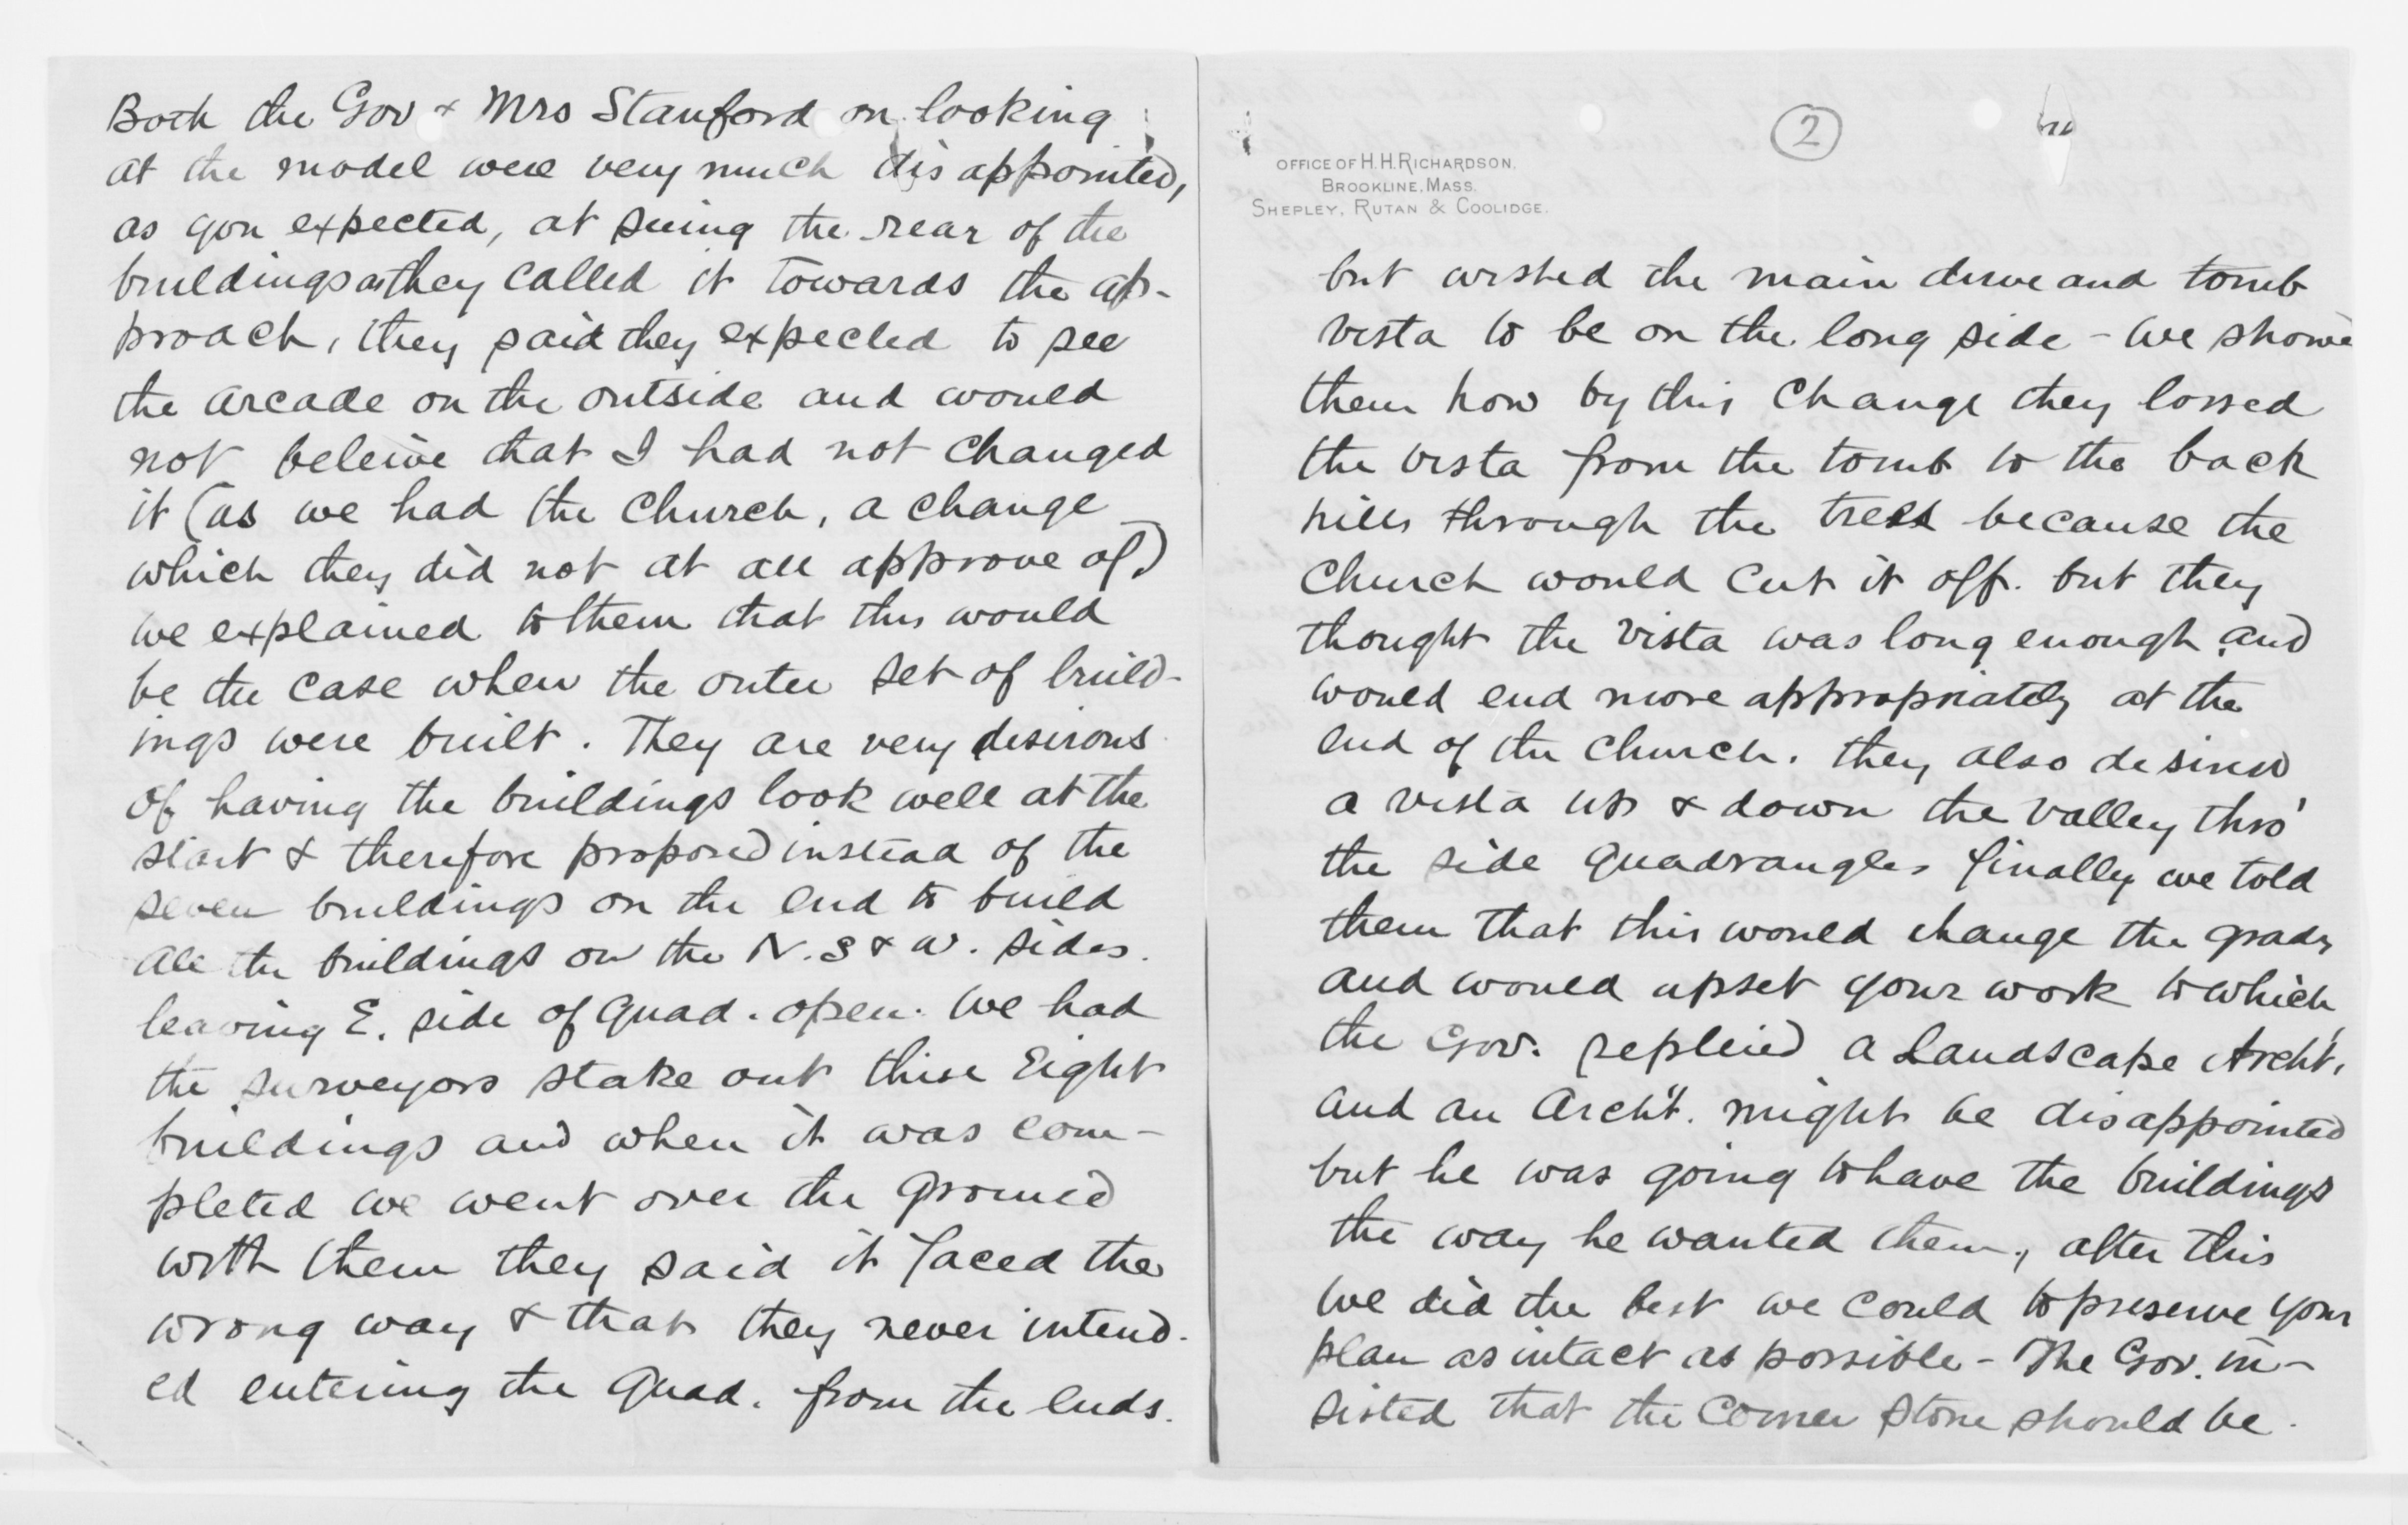 Both the Gov & Mrs Stanford on looking
at the model were very much disappointed,
as you expected, at seeing the rear of the
buildings as they called it towards the ap-
proach, they said they expected to see
the arcade on the outside and would
not beleive that I had not changed
it (as we had the Church, a change
which they did not at all approve of)
we explained to them that this would
be the case when the outer set of build-
ings were built. They are very desirous
of having the buildings look well at the
start & therefore proposed instead of the
seven buildings on the end to build
all the buildings on the N. S & W. sides.
leaving E. side of quad. open. We had
the surveyors stake out these Eight
buildings and when it was com-
pleted we went over the ground
with them they said it faced the
wrong way & that they never intend-
ed entering the Quad. from the ends.
2
OFFICE OF H. H. RICHARDSON,
BROOKLINE, MASS.
SHEPLEY, RUTAN & COOLIDGE.
but wished the main drive and tomb
vista to be on the long side - We showe
them how by this change they lossed
the vista from the tomb to the back
hills through the trees because the
Church would cut it off. but they
thought the vista was long enough and
would end more appropriately at the
end of the church. they also desired
a vista up & down the valley thro'
the side quadrangles finally we told
them that this would change the grades
and would upset your work to which
the Gov. repleied a Landscape Archt.
and an Archt. might be disappointed
but he was going to have the buildings
the way he wanted them, after this
we did the best we could to preserve your
plan as intact as possible - The Gov. in-
sisted that the Corner stone should be